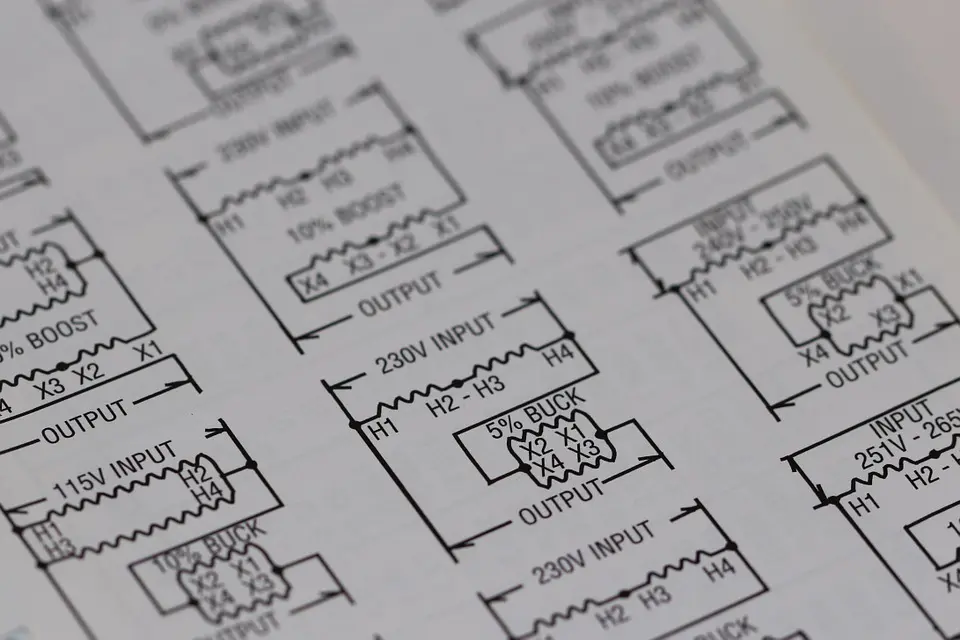 OUTPUT
10% BOOST
OUTPUT
230V INPUT
H1 H2 H3 H4
10% BOOST
X4 X3 - X2 X1
OUTPUT
INPUT
240V - 250V
H1 H2 - H3 H4
5% BUCK
X2 X1
X4 X3
OUTPUT
H2
H4
% BOOST
X3 X2 X1
OUTPUT
230V INPUT
H1 H2 - H3 H4
5% BUCK
X2 X1
X4 X3
OUTPUT
INPUT
251V - 265V
H1 H2 -
X4
115V INPUT
H1 H2
H3 H4
10% BUCK
X2 X1
X4 X3
OUTPUT
230V INPUT
H2 H3 H4
BUCK